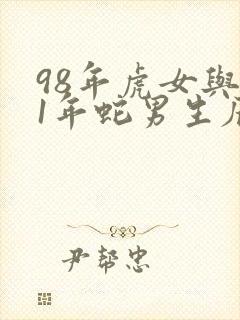 98年虎女與
1年蛇男生
尹幇忠